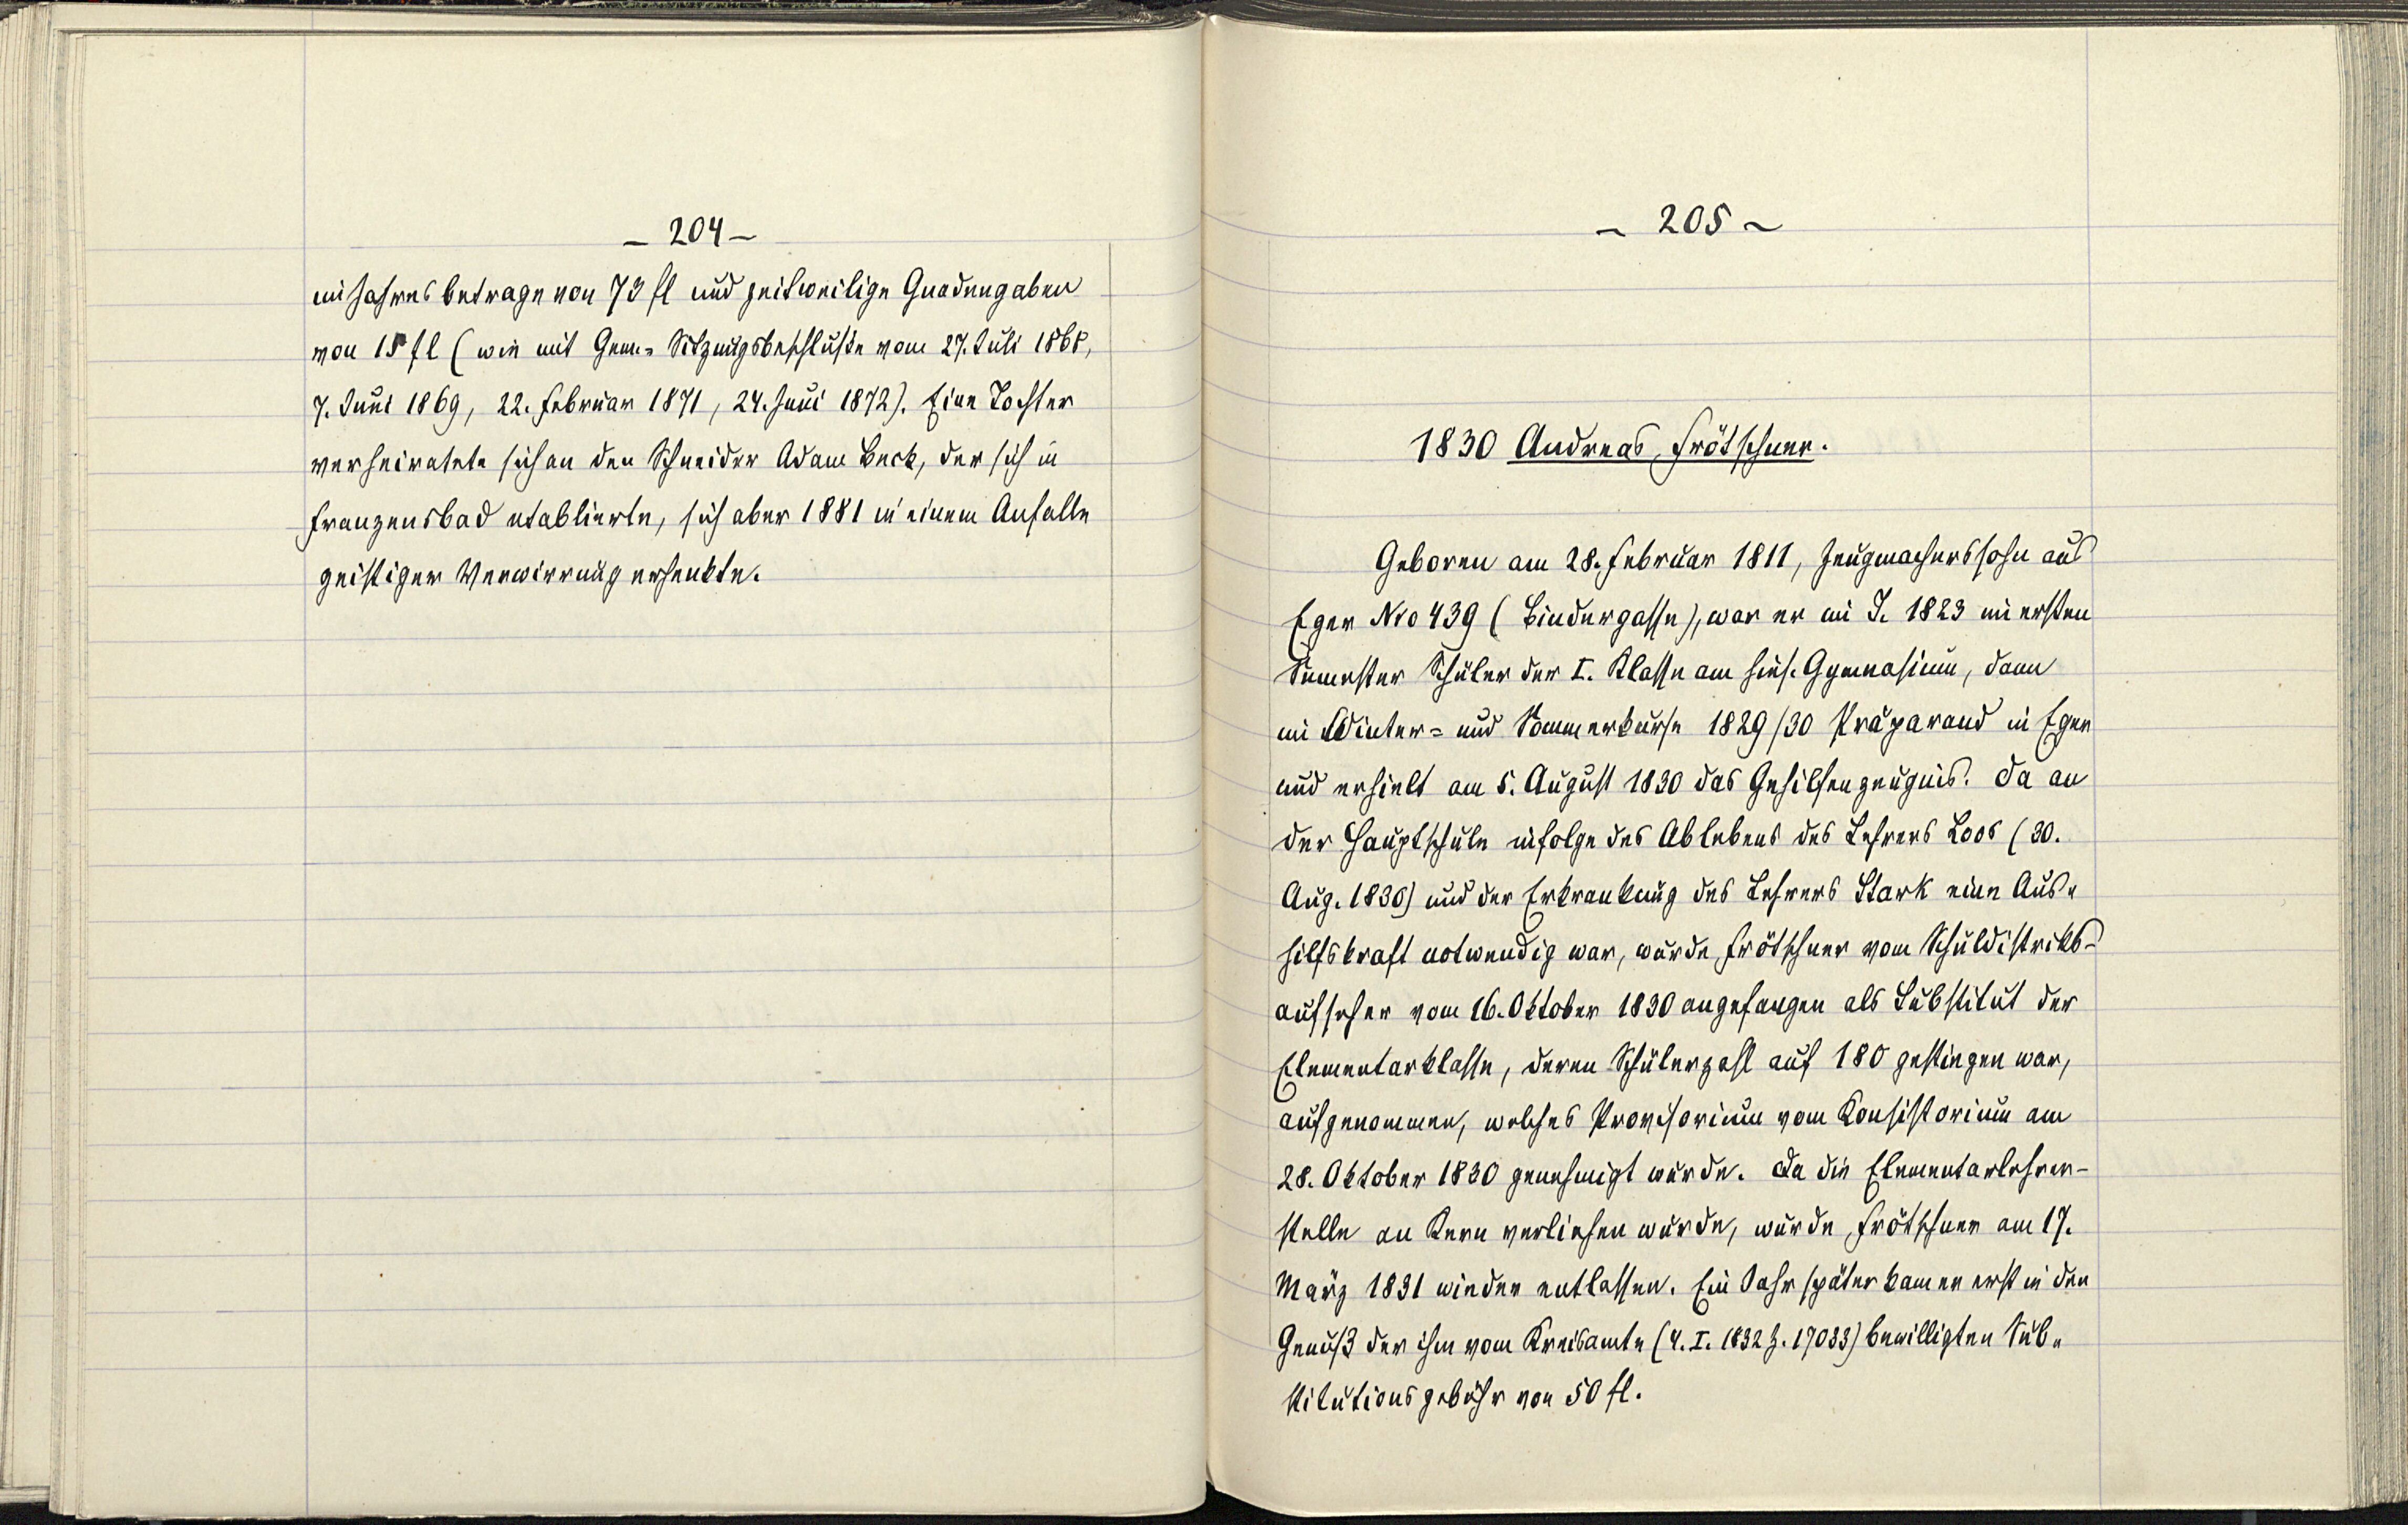 – 204 –
im Jahresbetrage von 73 fl und zeitweilige Gnadengaben
von 15 fl (wie mit Gem.= Sitzungsbeschluße vom 27. Juli 1868,
7. Juni 1869, 22. Februar 1871, 24. Juni 1872). Eine Tochter
verheiratete sich an den Schneider Adam Beck, der sich in
Franzensbad etablierte, sich aber 1881 in einem Anfalle
geistiger Verwirrung erhenkte.
– 205 –
1830 Andreas Frötschner.
Geboren am 28. Februar 1811, Zeugmacherssohn aus
Eger Nro 439 (Bindergasse), war er im J. 1823 im ersten
Semester Schüler der I. Klasse am hies. Gymnasium, dann
im Winter= und Sommerkurse 1829/30 Präparand in Eger
und erhielt am 5. August 1830 das Gehilfenzeugnis. Da an
der Hauptschule infolge des Ablebens des Lehrers Loos (30.
Aug. 1830) und der Erkrankung des Lehrers Stark eine Aus=
hilfskraft notwendig war, wurde Frötschner vom Schuldistrikts=
aufseher vom 16. Oktober 1830 angefangen als Substitut der
Elementarklasse, deren Schülerzahl auf 180 gestiegen war,
aufgenommen, welches Provisorium vom Konsistorium am
28. Oktober 1830 genehmigt wurde. Da die Elementarlehrer-
stelle an Kern verliehen wurde, wurde Frötschner am 17.
März 1831 wieder entlassen. Ein Jahr später kam er erst in den
Genuß der ihm vom Kreisamte (4. I. 1832 Z. 17033) bewilligten Sub=
stitutionsgebühr von 50 fl.